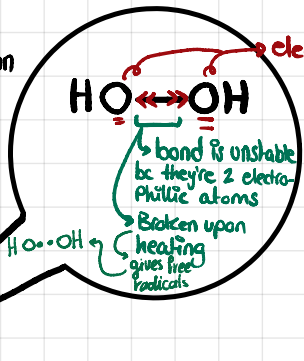 on
ele
HO OH
bond is unstable
bc they're 2 electro-
Phillic atoms
Broken upon
heating
gives free
radicals
HO•  •OH